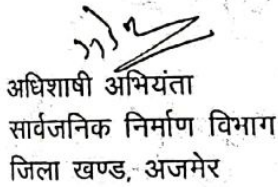 अधिशाषी अभियंता
सार्वजनिक निर्माण विभाग
जिला खण्ड, अजमेर